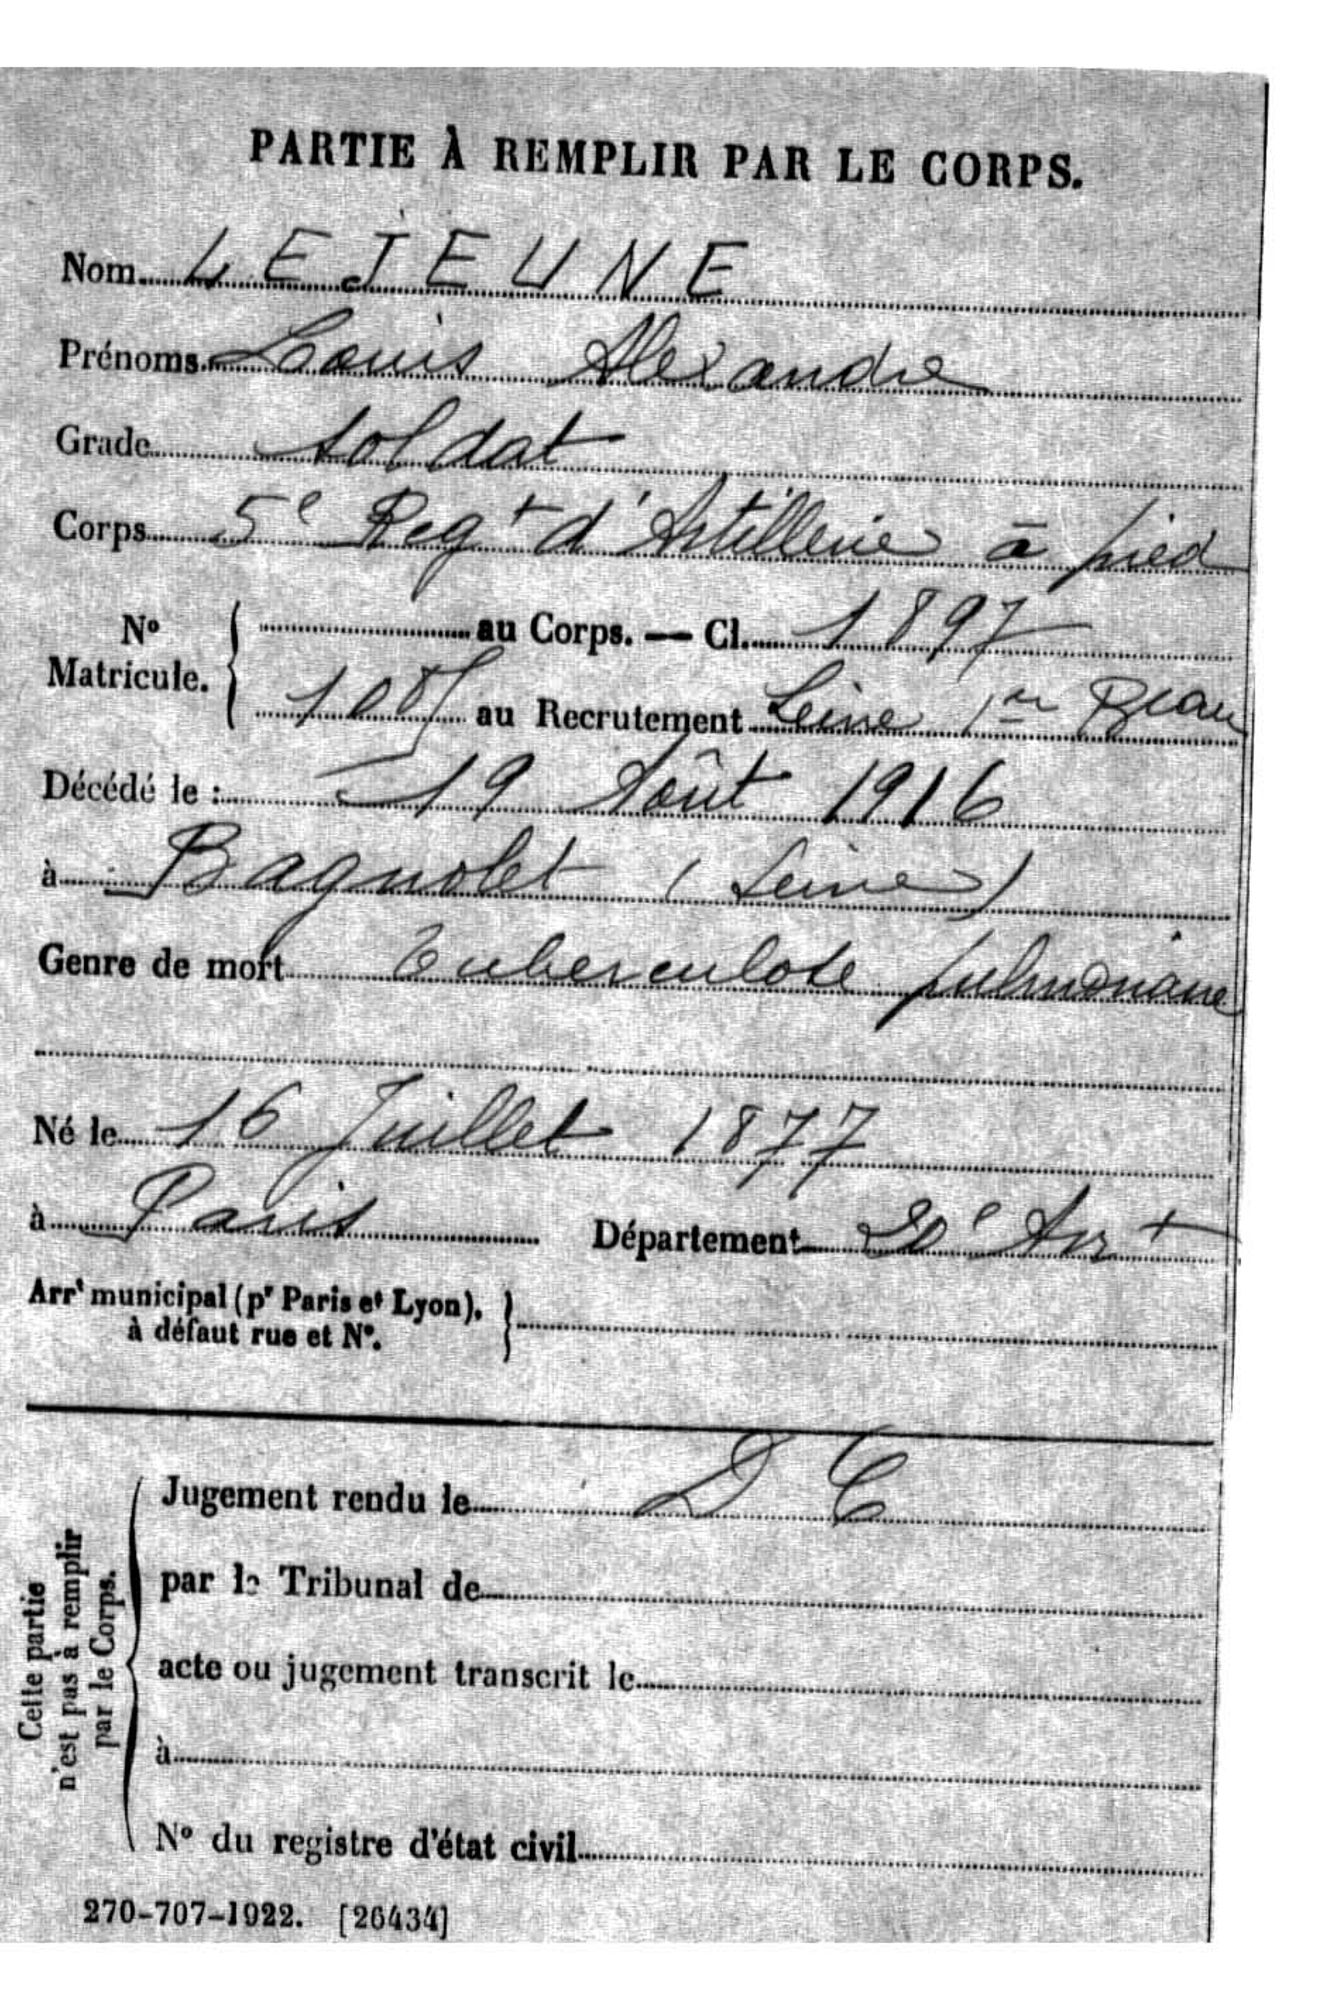 PARTIE À REMPLIR PAR LE CORPS.
Nom LEJEUNE
Prénoms Louis Alexandre
Grade Soldat
Corps 5e Regt d'Artillerie à pied
No au Corps. — Cl. 1897
Matricule. au Recrutement Seine 1er Beau
Décédé le : 19 Août 1916
à Bagnolet (Seine)
Genre de mort Tuberculose pulmonaire
Né le 16 Juillet 1877
à Paris Département 20e Arrt
Arrt municipal (pr Paris et Lyon),
à défaut rue et No.
Jugement rendu le D C
par le Tribunal de
acte ou jugement transcrit le
à
No du registre d'état civil
Cette partie
n'est pas à remplir
par le Corps.
270-707-1922. [26434]